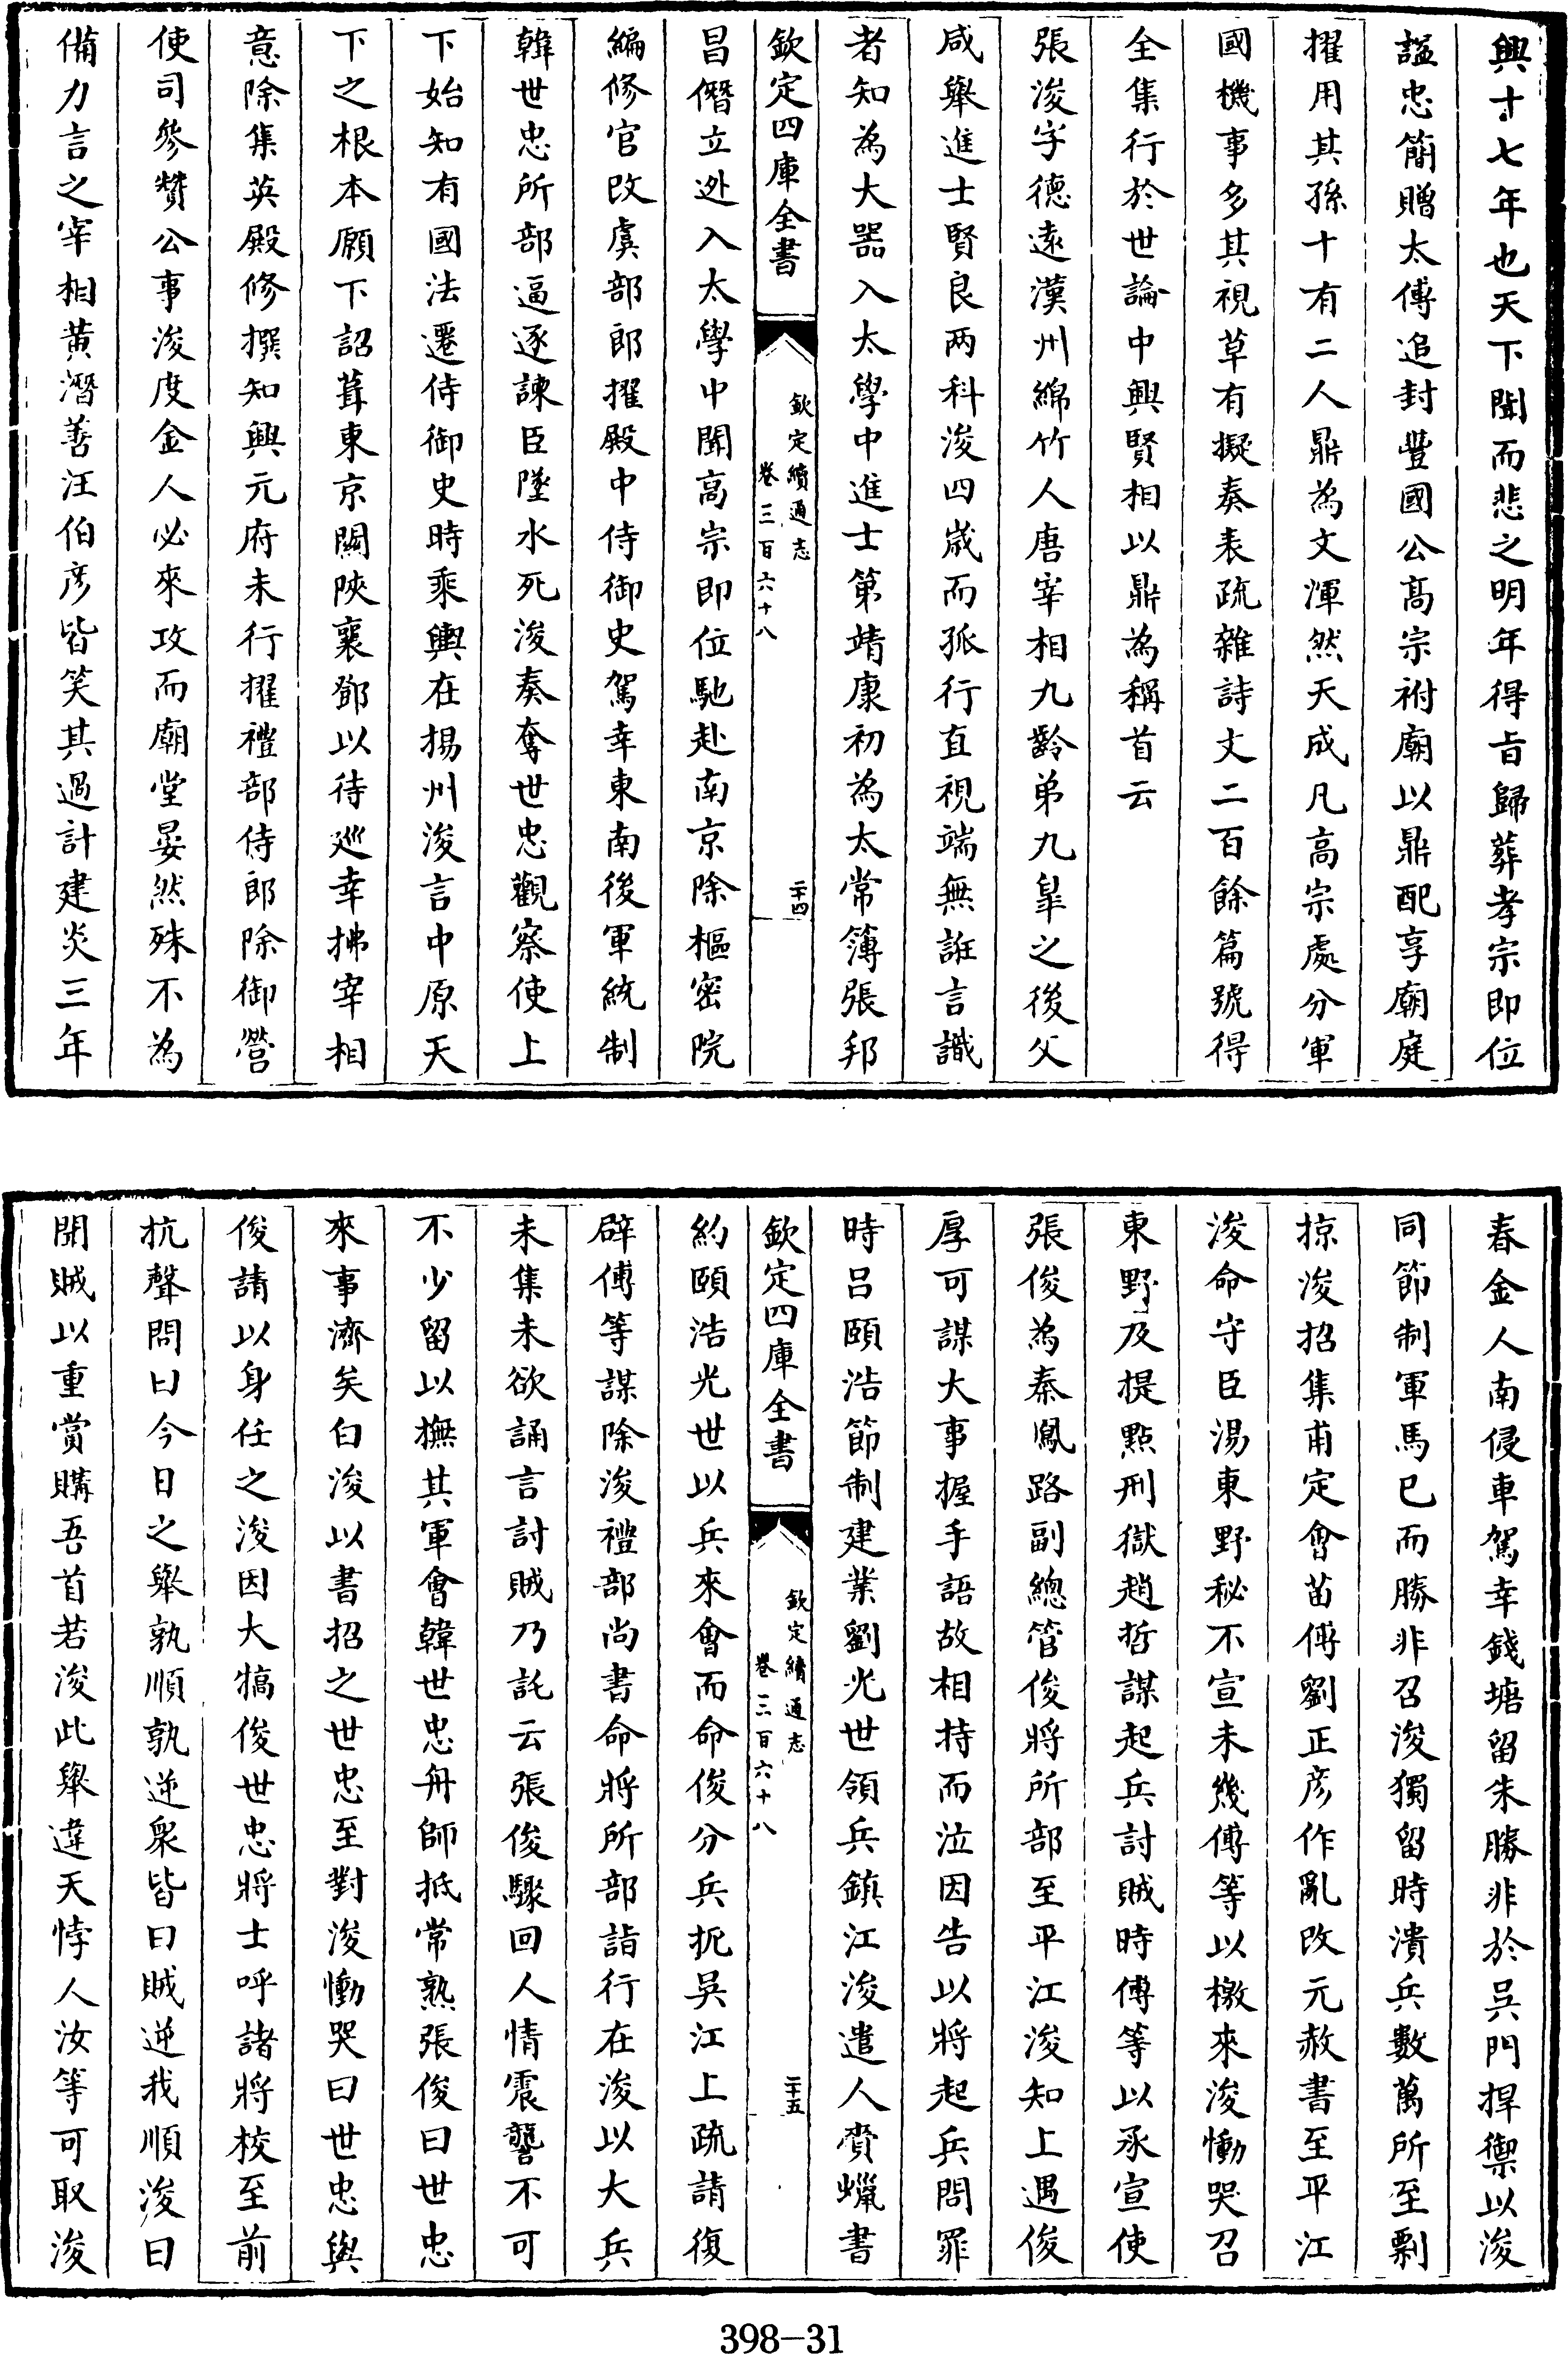 興十七年也天下聞而悲之明年得旨歸葬孝宗即位
諡忠簡贈太傅追封豐國公高宗祔廟以鼎配享廟庭
擢用其孫十有二人鼎為文渾然天成凡高宗處分軍
國機事多其視草有擬奏表疏雜詩文二百餘篇號得
全集行於世論中興賢相以鼎為稱首云
張浚字德遠漢州綿竹人唐宰相九齡弟九皐之後父
咸舉進士賢良两科浚四歲而孤行直視端無誑言識
者知為大器入太學中進士第靖康初為太常簿張邦
欽定四庫全書
欽定續通志
卷三百六十八
二十四
昌僭立迯入太學中聞高宗即位馳赴南京除樞密院
編修官改虞部郎擢殿中侍御史駕幸東南後軍統制
韓世忠所部逼逐諫臣墜水死浚奏奪世忠觀察使上
下始知有國法遷侍御史時乘輿在揚州浚言中原天
下之根本願下詔葺東京關陝襄鄧以待廵幸拂宰相
意除集英殿修撰知興元府未行擢禮部侍郎除御營
使司參贊公事浚度金人必來攻而廟堂晏然殊不為
備力言之宰相黃潛善汪伯彥皆笑其過計建炎三年
春金人南侵車駕幸錢塘留朱勝非於吳門捍禦以浚
同節制軍馬已而勝非召浚獨留時潰兵數萬所至剽
掠浚招集甫定會苗傅劉正彥作亂改元赦書至平江
浚命守臣湯東野秘不宣未幾傅等以檄來浚慟哭召
東野及提點刑獄趙哲謀起兵討賊時傅等以承宣使
張俊為秦鳳路副總管俊將所部至平江浚知上遇俊
厚可謀大事握手語故相持而泣因告以將起兵問罪
時呂頤浩節制建業劉光世領兵鎮江浚遣人賫蠟書
欽定四庫全書
欽定續通志
卷三百六十八
二十五
約頤浩光世以兵來會而命俊分兵扼吳江上疏請復
辟傅等謀除浚禮部尚書命將所部詣行在浚以大兵
未集未欲誦言討賊乃託云張俊驟回人情震讋不可
不少留以撫其軍會韓世忠舟師抵常熟張俊曰世忠
來事濟矣白浚以書招之世忠至對浚慟哭曰世忠與
俊請以身任之浚因大犒俊世忠將士呼諸將校至前
抗聲問曰今日之舉孰順孰逆衆皆曰賊逆我順浚曰
聞賊以重賞購吾首若浚此舉違天悖人汝等可取浚
398-31